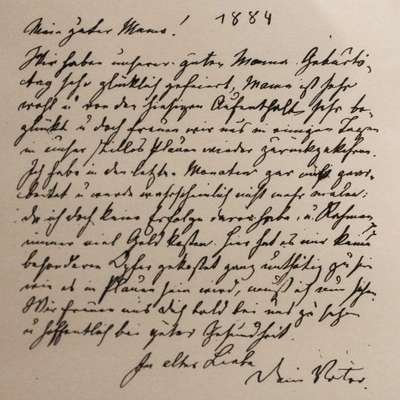 Mein guter Mann! 1884
Wir haben unserer guten Mama Geburts-
tag sehr glücklich gefeiert, Mama ist sehr
wohl u von den hiesigen Aufenthalt sehr be-
glückt u doch freuen wir uns in einigen Tagen
in unser stilles Plauen wieder zurückzukehren.
Ich habe in den letzten Monaten gar nicht gear-
beitet u werde wahrscheinlich nicht mehr malen;
da ich doch keine Erfolge davon habe, u Rahmen
immer viel Geld kosten. Hier hat es mir keine
besonderen Opfer gekostet ganz unthätig zu sein
wie es in Plauen sein wird, muß ich nun sehen.
Wir freuen uns Dich bald bei uns zu sehen
u hoffentlich bei guter Gesundheit.
In alter Liebe
Dein Vater.